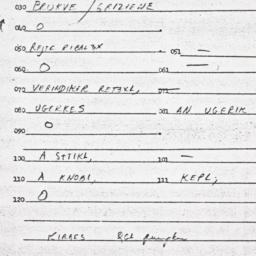 030 BRUKVE / GRIZIENE
040 O
050 REJTE RIBALTX 051 —
060 O 061 —
072 VERINDIKER RETEXL,
080 UGERKES 081 AN UGERIK
090 O
100 A SHTIKL, 101 —
110 A KNOBL, 111 KEPL;
120 O